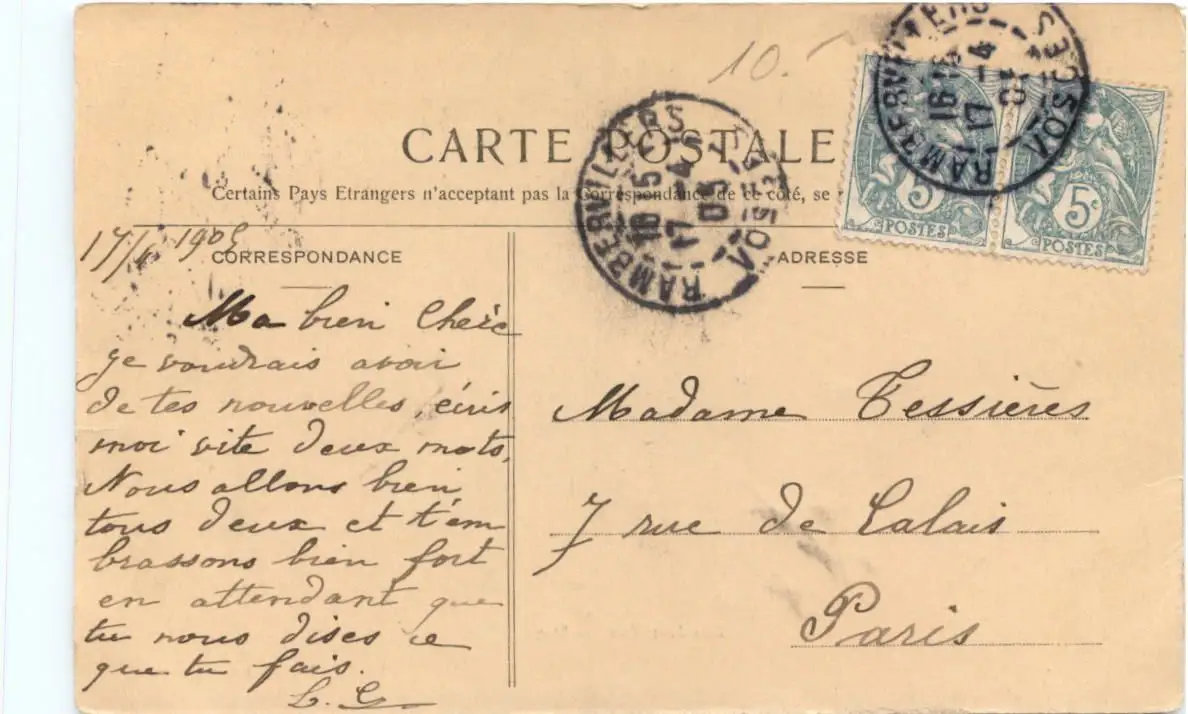 10.-
CARTE POSTALE
Certains Pays Etrangers n'acceptant pas la Correspondance de ce côté, se
RAMBERVILLERS
16 15
17 4
05
VOSGES
RAMBERVILLERS
16
17 4
VOSGES
5c
POSTES
5c
POSTES
17/4 1905
CORRESPONDANCE
Ma bien Chère
je voudrais avoir
de tes nouvelles, écris
moi vite deux mots,
Nous allons bien
tous deux et t'em
brassons bien fort
en attendant que
tu nous dises ce
que tu fais.
L. G
ADRESSE
Madame Tessières
7 rue de Calais
Paris